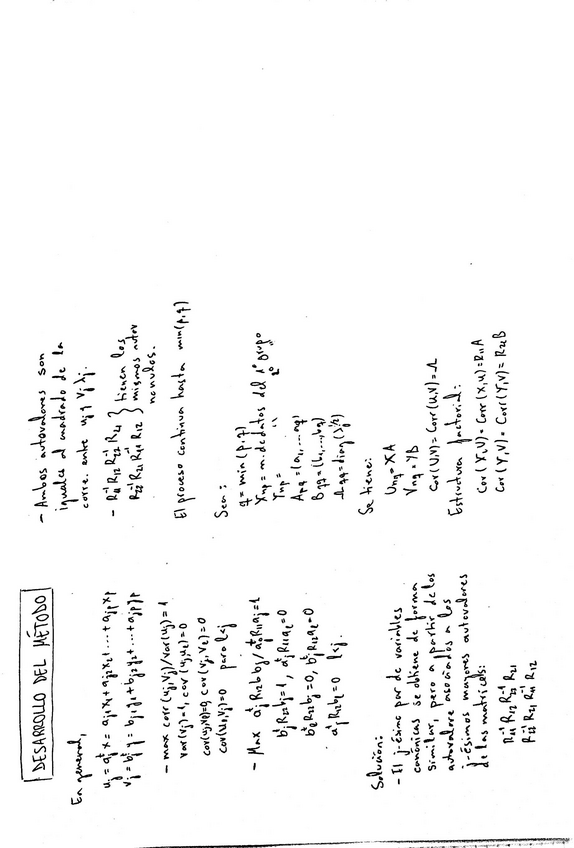 DESARROLLO DEL MÉTODO
En general,
u_j = a_j^t x = a_j1 x_1 + a_j2 x_2 + ... + a_jp x_p
v_j = b_j^t y = b_j1 y_1 + b_j2 y_2 + ... + a_jp y_p
- max corr (u_j, v_j) / var(u_j) = 1
var(v_j) = 1, cov (u_j, u_l) = 0
cov(u_j, v_l) = 0, cov (v_j, v_l) = 0
cov(u_l, v_j) = 0 para l<j
- Max a_j^t R_12 b_j / a_j^t R_11 a_j = 1
b_j^t R_22 b_j = 1, a_j^t R_11 a_l = 0
b_l^t R_22 b_j = 0, b_j^t R_12 a_l = 0
a_j^t R_12 b_l = 0 l<j.
Solución:
- El j-ésimo par de variables
canónicas se obtiene de forma
similar, pero a partir de los
autovalore asociados a los
j-ésimos mayores autovalores
de las matrices:
R_11^-1 R_12 R_22^-1 R_21
R_22^-1 R_21 R_11^-1 R_12
- Ambos autovalores son
iguales al cuadrado de la
corre. entre u_j y v_j λ_j.
- R_11^-1 R_12 R_22^-1 R_21 } tienen los
R_22^-1 R_21 R_11^-1 R_12 } mismos autov
no nulos.
El proceso continua hasta min(p,q)
Sean:
q = min (p, q)
X_np = m. de datos del 1º grupo
Y_np = " 2º "
A_pq = (a_1, ..., a_q)
B_qq = (b_1, ..., b_q)
Λ_qq = diag (λ_j^1/2)
Se tiene:
U_nq = XA
V_nq = YB
Cov(U,V) = Corr(U,V) = Λ
Estructura factorial:
Cov (X,U) = Corr (X,U) = R_11 A
Cov (Y,V) = Corr (Y,V) = R_22 B